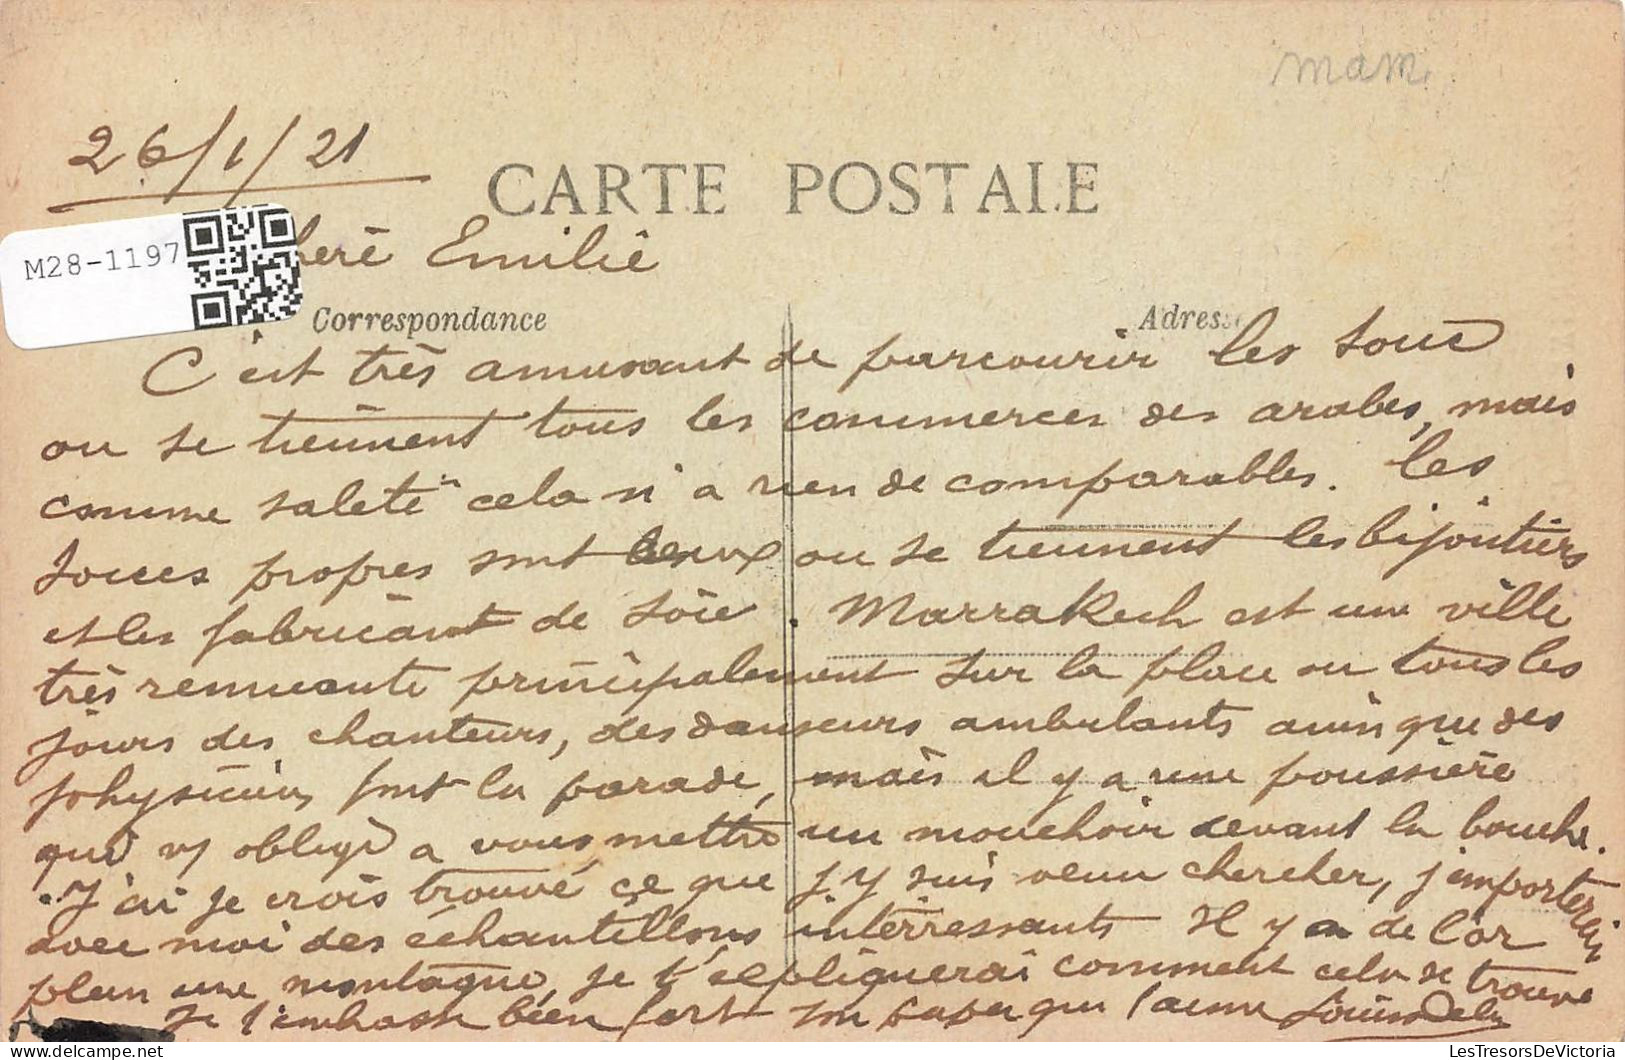 mam
26/1/21
CARTE POSTALE
M28-1197
here Emilie
Correspondance
Adresse
C'est très amusant de parcourir les souc
ou se tiennent tous les commerces des arabes, mais
comme saleté cela n'a rien de comparables. les
soucs propres sont ceux ou se tiennent les bijoutiers
et les fabricant de soie. Marrakech est une ville
très remuante principalement sur la place ou tous les
jours des chanteurs, des danseurs ambulants ainsi que des
physiciens font la parade, mais il y a une poussière
qui oblige a vous mettre un mouchoir devant la bouche.
J'ai je crois trouvé ce que j'y suis venu chercher, j'emporterai
avec moi des échantillons intérressants Il y a de l'or
plein une montagne, je t'expliquerai comment cela se trouve
Je t'embrasse bien fort ton papa qui t'aime Louis
LesTresorsDeVictoria.com